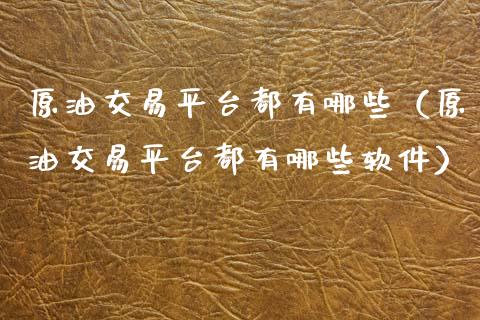 原油交易平台都有哪些（原
油交易平台都有哪些软件）